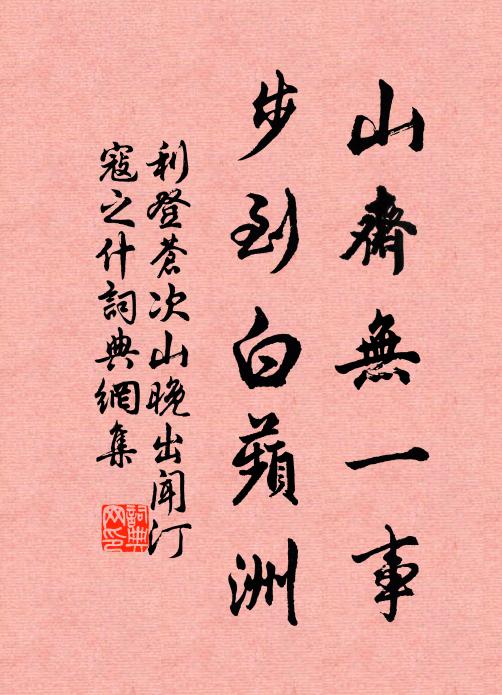 山齋無一事
步到白蘋洲
利登蒼次山晚出聞汀
寇之什詞典網集
詞典网印